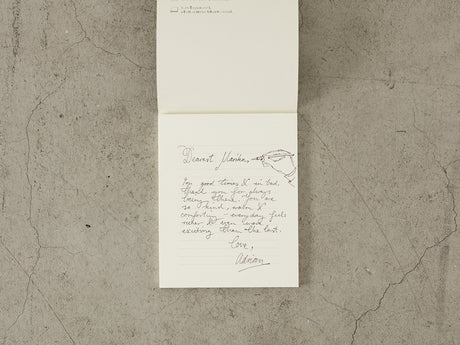 Dearest Marika,
In good times & in bad,
thank you for always
being there. You are
so kind, warm &
comforting – everyday feels
richer & even more
exciting than the last.
Love,
Adrian